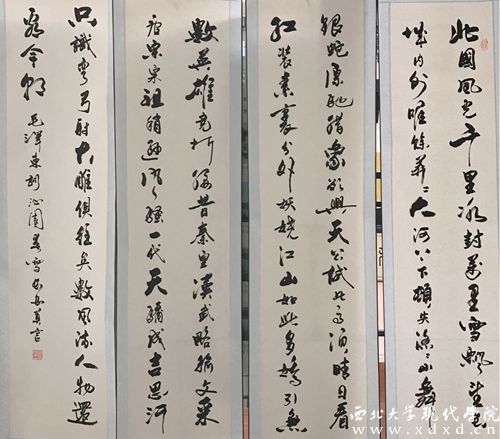 北國風光千里冰封萬里雪飄望長
城内外唯餘莽々大河上下頓失滔々山舞
銀蛇原馳蜡象欲與天公試比高須晴日看
紅裝素裹分外妖嬈江山如此多嬌引無
數英雄竞折腰昔秦皇漢武略輸文采
唐宗宋祖稍遜風騷一代天驕成吉思汗
只識彎弓射大雕俱往矣數風流人物還
看今朝 毛澤東詞沁園春雪 書
西北大学现代学院
www.xdxd.cn